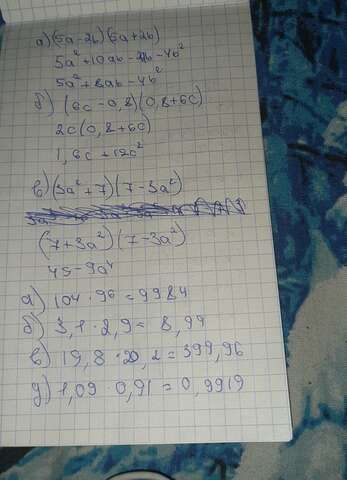 а) (5a-2b)(5a+2b)
5a²+10ab-2ab-4b²
5a²+8ab-4b²
б) (6c-0,8)(0,8+6c)
2c(0,8+6c)
1,6c+12c²
в) (3a²+7)(7-3a²)
(7+3a²)(7-3a²)
49-9a⁴
а) 104·96=9984
б) 3,1·2,9=8,99
в) 19,8·20,2=399,96
д) 1,09·0,91=0,9919